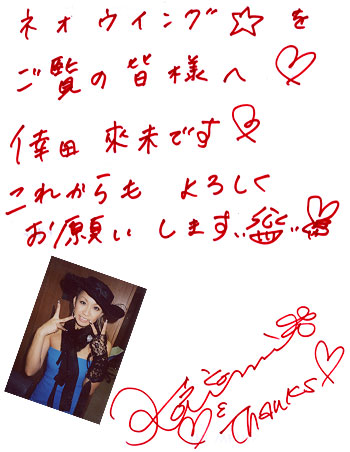 ネオウイング☆を
ご覧の皆様へ♡
倖田來未です♡
これからも よろしく
お願いします
Kumi
♡& THANKS♡